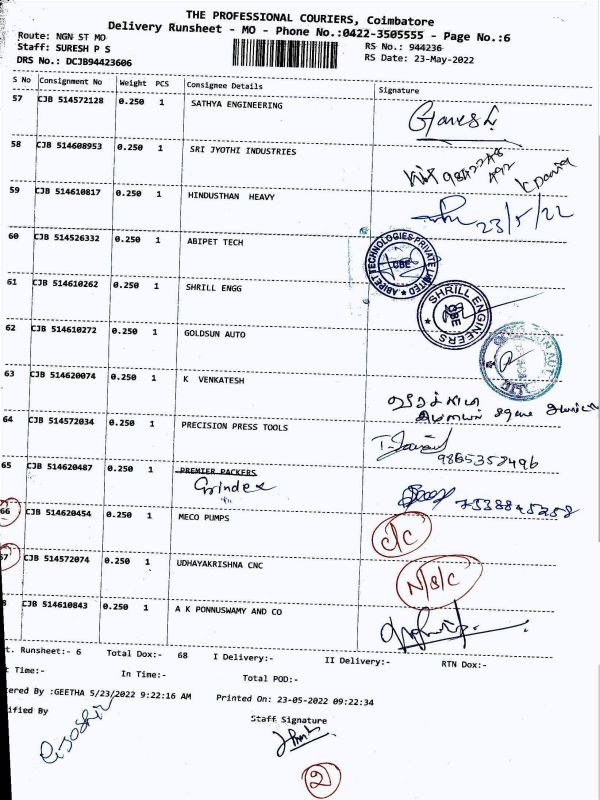 THE PROFESSIONAL COURIERS, Coimbatore
Delivery Runsheet - MO - Phone No.:0422-3505555 - Page No.:6
Route: NGN ST MO
RS No.: 944236
Staff: SURESH P S
RS Date: 23-May-2022
DRS No.: DCJB94423606
S No Consignment No Weight PCS Consignee Details Signature
57 CJB 514572128 0.250 1 SATHYA ENGINEERING Ganesh
58 CJB 514608953 0.250 1 SRI JYOTHI INDUSTRIES
59 CJB 514610817 0.250 1 HINDUSTHAN HEAVY 23/5/22
60 CJB 514526332 0.250 1 ABIPET TECH
ABIPET TECHNOLOGIES PRIVATE LIMITED
CBE
61 CJB 514610262 0.250 1 SHRILL ENGG
SHRILL ENGINEERS
62 CJB 514610272 0.250 1 GOLDSUN AUTO
63 CJB 514620074 0.250 1 K VENKATESH
64 CJB 514572034 0.250 1 PRECISION PRESS TOOLS
9865358496
65 CJB 514620487 0.250 1 PREMIER PACKERS
Grindex
66 CJB 514620454 0.250 1 MECO PUMPS C/C
67 CJB 514572074 0.250 1 UDHAYAKRISHNA CNC N/S/C
CJB 514610843 0.250 1 A K PONNUSWAMY AND CO
t. Runsheet:- 6 Total Dox:- 68 I Delivery:- II Delivery:- RTN Dox:-
t Time:- In Time:- Total POD:-
tered By :GEETHA 5/23/2022 9:22:16 AM Printed On: 23-05-2022 09:22:34
ified By
Staff Signature
2